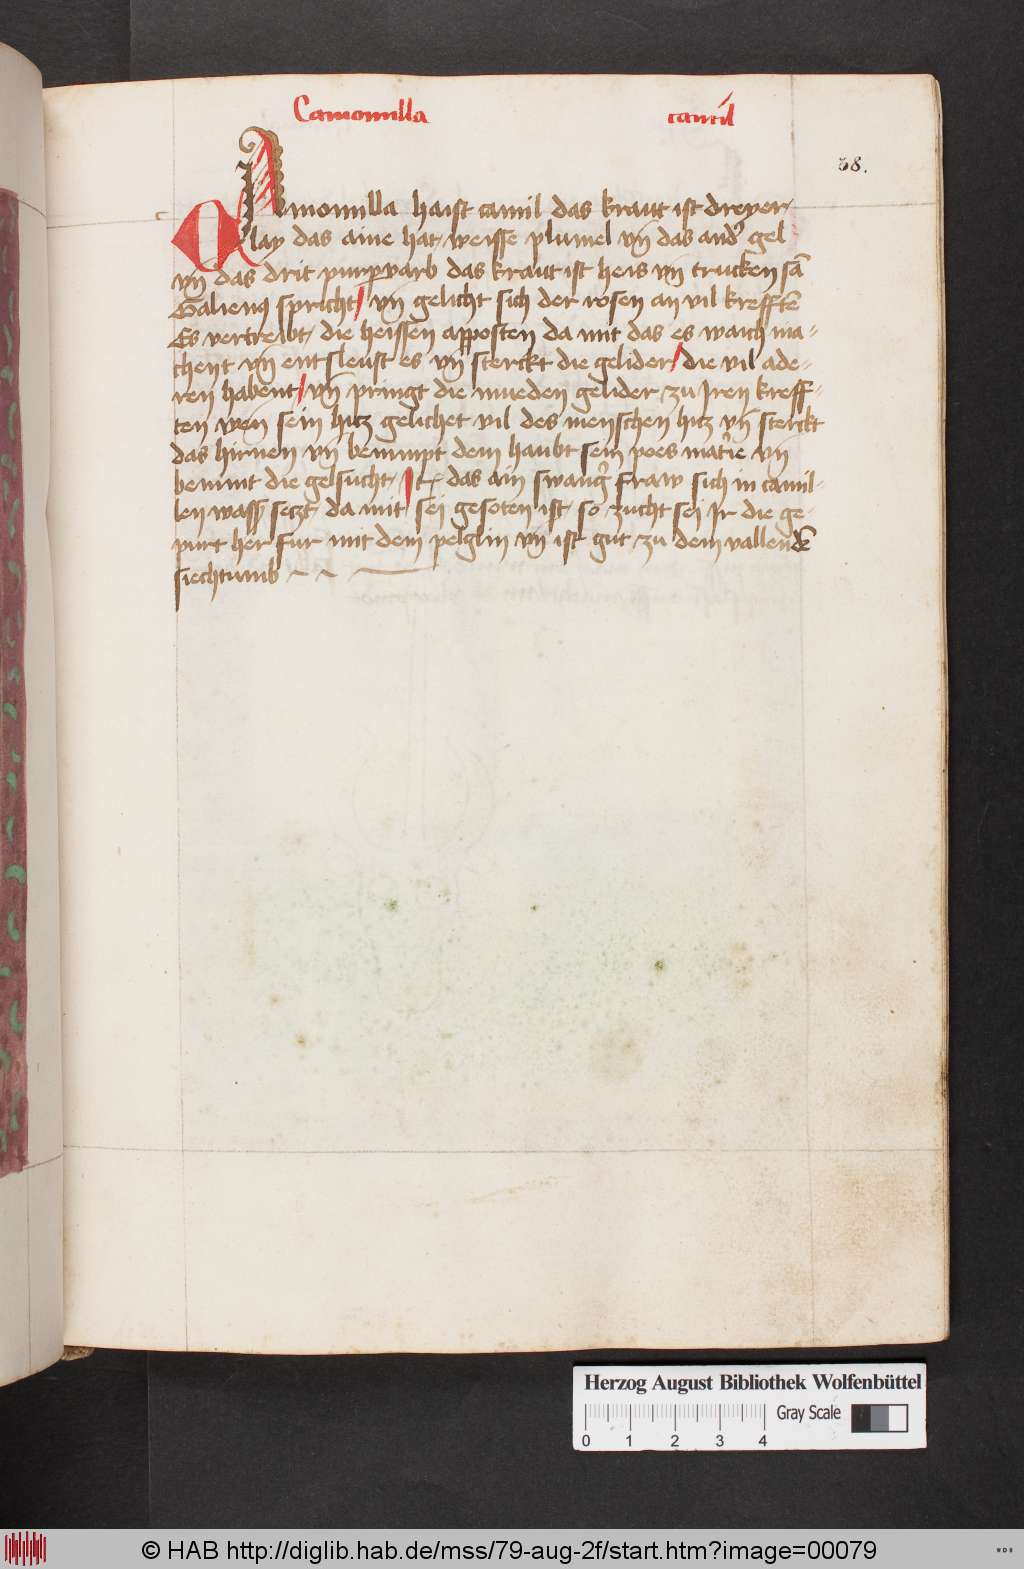 Camomilla camil
38.
CAmomilla haist camil das kraut ist dreyer
lay das aine hat weisse plumel vn̄ das and͛ gel
vn̄ das drit purpervarb das kraut ist heis vn̄ trucken sā
Galienꝯ spricht / vn̄ gelicht sich der rosen an vil krefftē
Es vertreibt die heissen apposten da mit das es waich ma-
chent vn̄ entsleust es vn̄ sterckt die gelider / die vil ade-
ren habent / vn̄ pringt die mueden gelider zu Iren kreff-
ten wen̄ sein hitz gelichet vil des menschen hitz vn̄ sterckt
das hirnen vn̄ benimpt dem haubt sein poes materie vn̄
benimt die gelsucht / It das ain swang͛ fraw sich in camil-
len wass͛ seczt da mit sei gesoten ist so zucht sei Ir die ge-
purt her fur mit dem pelglin vn̄ ist gut zu dem vallendē
siechtumb
Herzog August Bibliothek Wolfenbüttel
Gray Scale
0 1 2 3 4
© HAB http://diglib.hab.de/mss/79-aug-2f/start.htm?image=00079